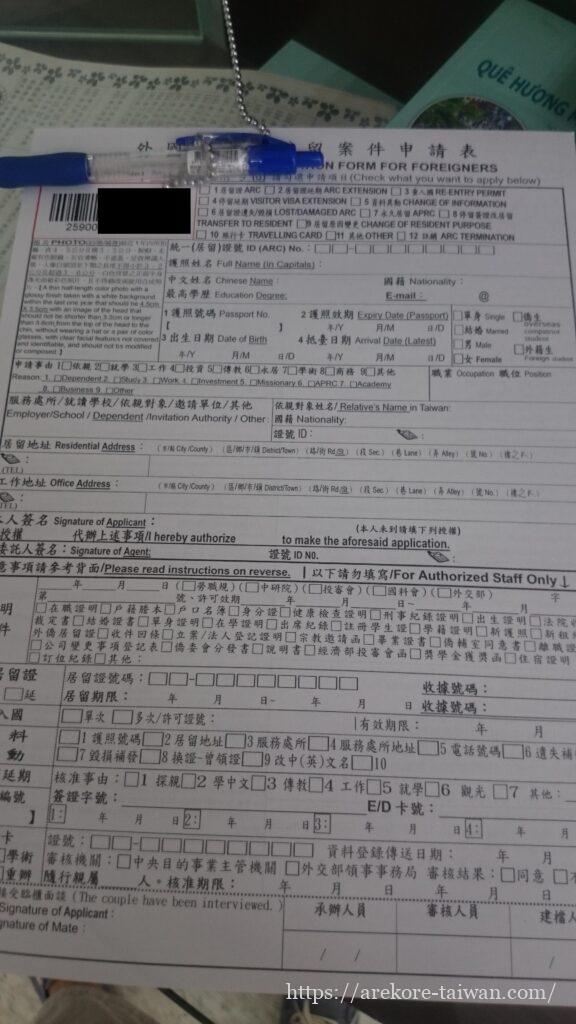 QUÊ HƯƠNG
外國 留案件申請表
ION FORM FOR FOREIGNERS
(Check what you want to apply below)
□ 1 居留證 ARC □ 2 居留證延期 ARC EXTENSION □ 3 重入國 RE-ENTRY PERMIT
□ 4 停留延期 VISITOR VISA EXTENSION □ 5 資料異動 CHANGE OF INFORMATION
□ 6 居留證遺失/毀損 LOST/DAMAGED ARC □ 7 永久居留 APRC □ 8 停留簽證改居留
TRANSFER TO RESIDENT □ 9 居留原因變更 CHANGE OF RESIDENT PURPOSE
□ 10 旅行卡 TRAVELLING CARD □ 11 其他 OTHER □ 12 註銷 ARC TERMINATION
25900
統一(居留)證號 ID (ARC) No. : □□-□□□□□□□□
護照姓名 Full Name (in Capitals) :
中文姓名 Chinese Name : 國籍 Nationality :
最高學歷 Education Degree: E-mail : @
PHOTO
(A thin half-length color photo with a
glossy finish taken with a white background
within the last year that should be 4.5cm
X 3.5cm with an image of the head that
should not be shorter than 3.2cm or longer
than 3.6cm from the top of the head to the
chin, without wearing a hat or a pair of color
glasses, with clear facial features not covered
and identifiable, and should not be modified
or composed.)
1 護照號碼 Passport No. 2 護照效期 Expiry Date (Passport)
【 】 年/Y 月/M 日/D
3 出生日期 Date of Birth 4 抵臺日期 Arrival Date (Latest)
年/Y 月/M 日/D 年/Y 月/M 日/D
□ 單身 Single
□ 結婚 Married
□ 男 Male
□ 女 Female
□ 僑生
overseas
compatriot
student
□ 外籍生
Foreign student
申請事由 1□依親 2□就學 3□工作 4□投資 5□傳教 6□永居 7□學術 8□商務 9□其他
Reason: 1. Dependent 2. Study 3. Work 4. Investment 5. Missionary 6. APRC 7. Academy
8. Business 9. Other
職業 Occupation 職位 Position
服務處所/就讀學校/依親對象/邀請單位/其他
Employer/School / Dependent /Invitation Authority / Other :
依親對象姓名/ Relative's Name in Taiwan:
國籍 Nationality:
證號 ID :
居留地址 Residential Address : (市/縣 City /County) (區/鄉/市/鎮 District/Town) (路/街 Rd./St.) (段 Sec.) (巷 Lane) (弄 Alley) (號 No.) (樓之 F-)
(TEL)
工作地址 Office Address : (市/縣 City /County) (區/鄉/市/鎮 District/Town) (路/街 Rd./St.) (段 Sec.) (巷 Lane) (弄 Alley) (號 No.) (樓之 F-)
(TEL)
本人簽名 Signature of Applicant :
(本人未到請填下列授權)
授權 代辦上述事項/I hereby authorize to make the aforesaid application.
委託人簽名 : Signature of Agent: 證號 ID N0.
意事項請參考背面/Please read instructions on reverse. | 以下請勿填寫/For Authorized Staff Only ↓
年 月 日 (□勞職規) (□中研院) (□投審會) (□國科會) (□外交部) 字
第 號、許可效期 年 月 日~ 年 月
明 □在職證明 □戶籍謄本 □戶口名簿 □身分證 □健康檢查證明 □刑事紀錄證明 □出生證明 □法院
件 裁定書 □結婚證書 □單身證明 □在學證明 □出席紀錄 □註冊學生證 □學籍證明 □新護照
外僑居留證 □收件回條 □立案/法人登記證明 □宗教邀請函 □畢業證書 □僑輔室同意書 □離職證
□公司變更事項登記表 □僑委會分發書 □說明書 □經濟部投審會函 □獎學金獲獎函 □住宿證明
□訂位紀錄 □其他 :
居留證 居留證號碼 : □□-□□□□□□□□ 收據號碼 :
□延 居留期限 : 年 月 日~ 年 月 日 收據號碼 :
入國 □單次 □多次/許可證號 : 有效期限 : 年 月
料 □1 護照號碼 □2 居留地址 □3 服務處所 □4 服務處所地址 □5 電話號碼 □6 遺失補
動 □7 毀損補發 □8 換證-曾領證 □9 改中(英)文名 □10
延期 核准事由 : □1 探親 □2 學中文 □3 傳教 □4 工作 □5 就學 □6 觀光 □7 其他 :
編號 簽證字號 : E/D 卡號 :
】 1: 年 月 日 2: 年 月 日 3: 年 月 日 4: 年 月
卡 證號 : □□-□□□□□□□□ 資料登錄傳送日期 : 年 月
□學術 審核機關 : □中央目的事業主管機關 □外交部領事事務局 審核結果 : □同意 □不
□重辦 隨行親屬 人。核准期限 : 年 月 日 年 月 日
接受臨櫃面談 (The couple have been interviewed.)
Signature of Applicant :
gnature of Mate :
承辦人員 審核人員 建檔人
/ / / /
https://arekore-taiwan.com/